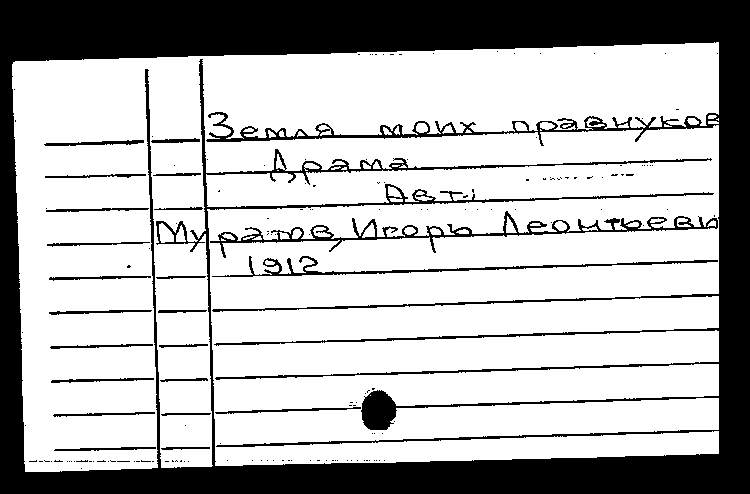 Земля моих правнуков
Драма.
Авт.:
Муратов, Игорь Леонтьеви
1912